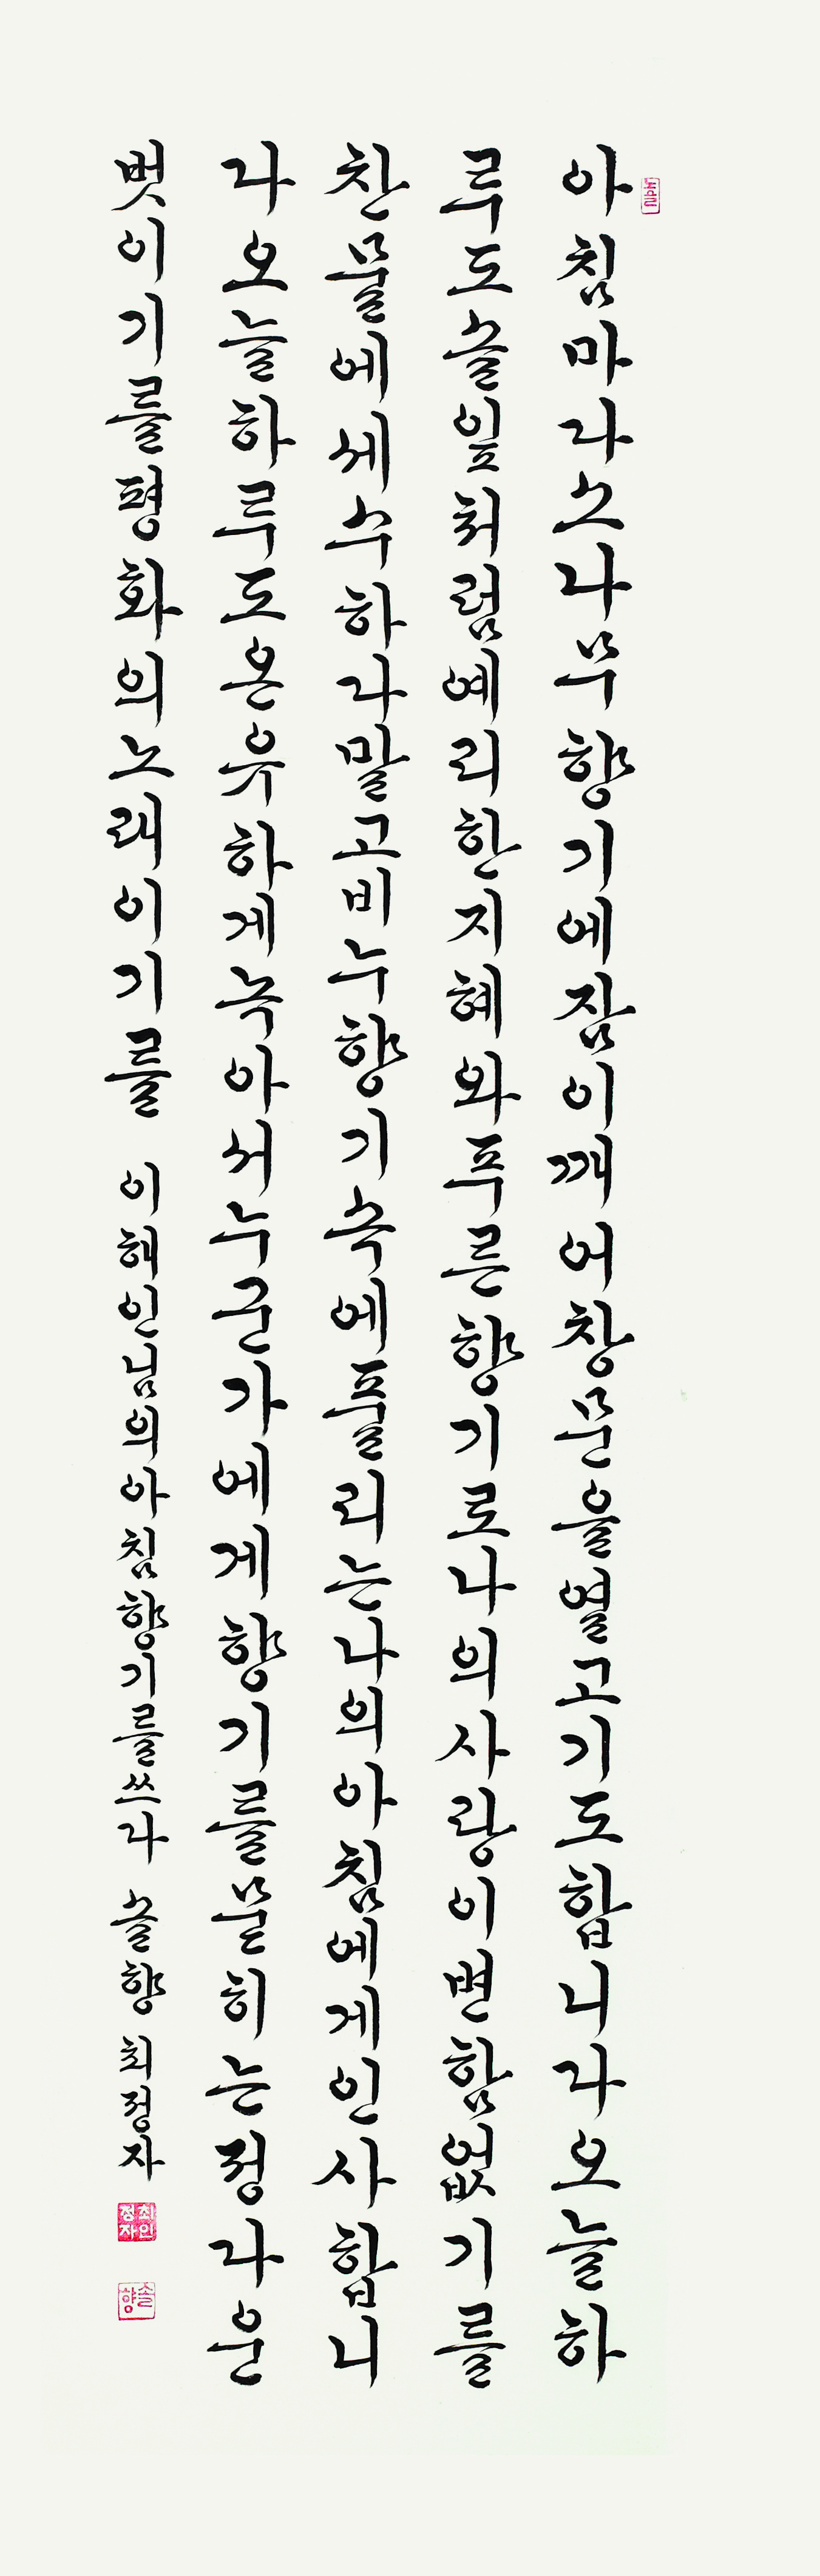 아침마다소나무향기에잠이깨어창문을열고기도합니다오늘하
루도솔잎처럼예리한지혜와푸른향기로나의사랑이변함없기를
찬물에세수하다말고비누향기속에풀리는나의아침에게인사합니
다오늘하루도온유하게녹아서누군가에게향기를묻히는정다운
벗이기를평화의노래이기를 이해인님의아침향기를쓰다 솔향 최정자
최정자인
솔향